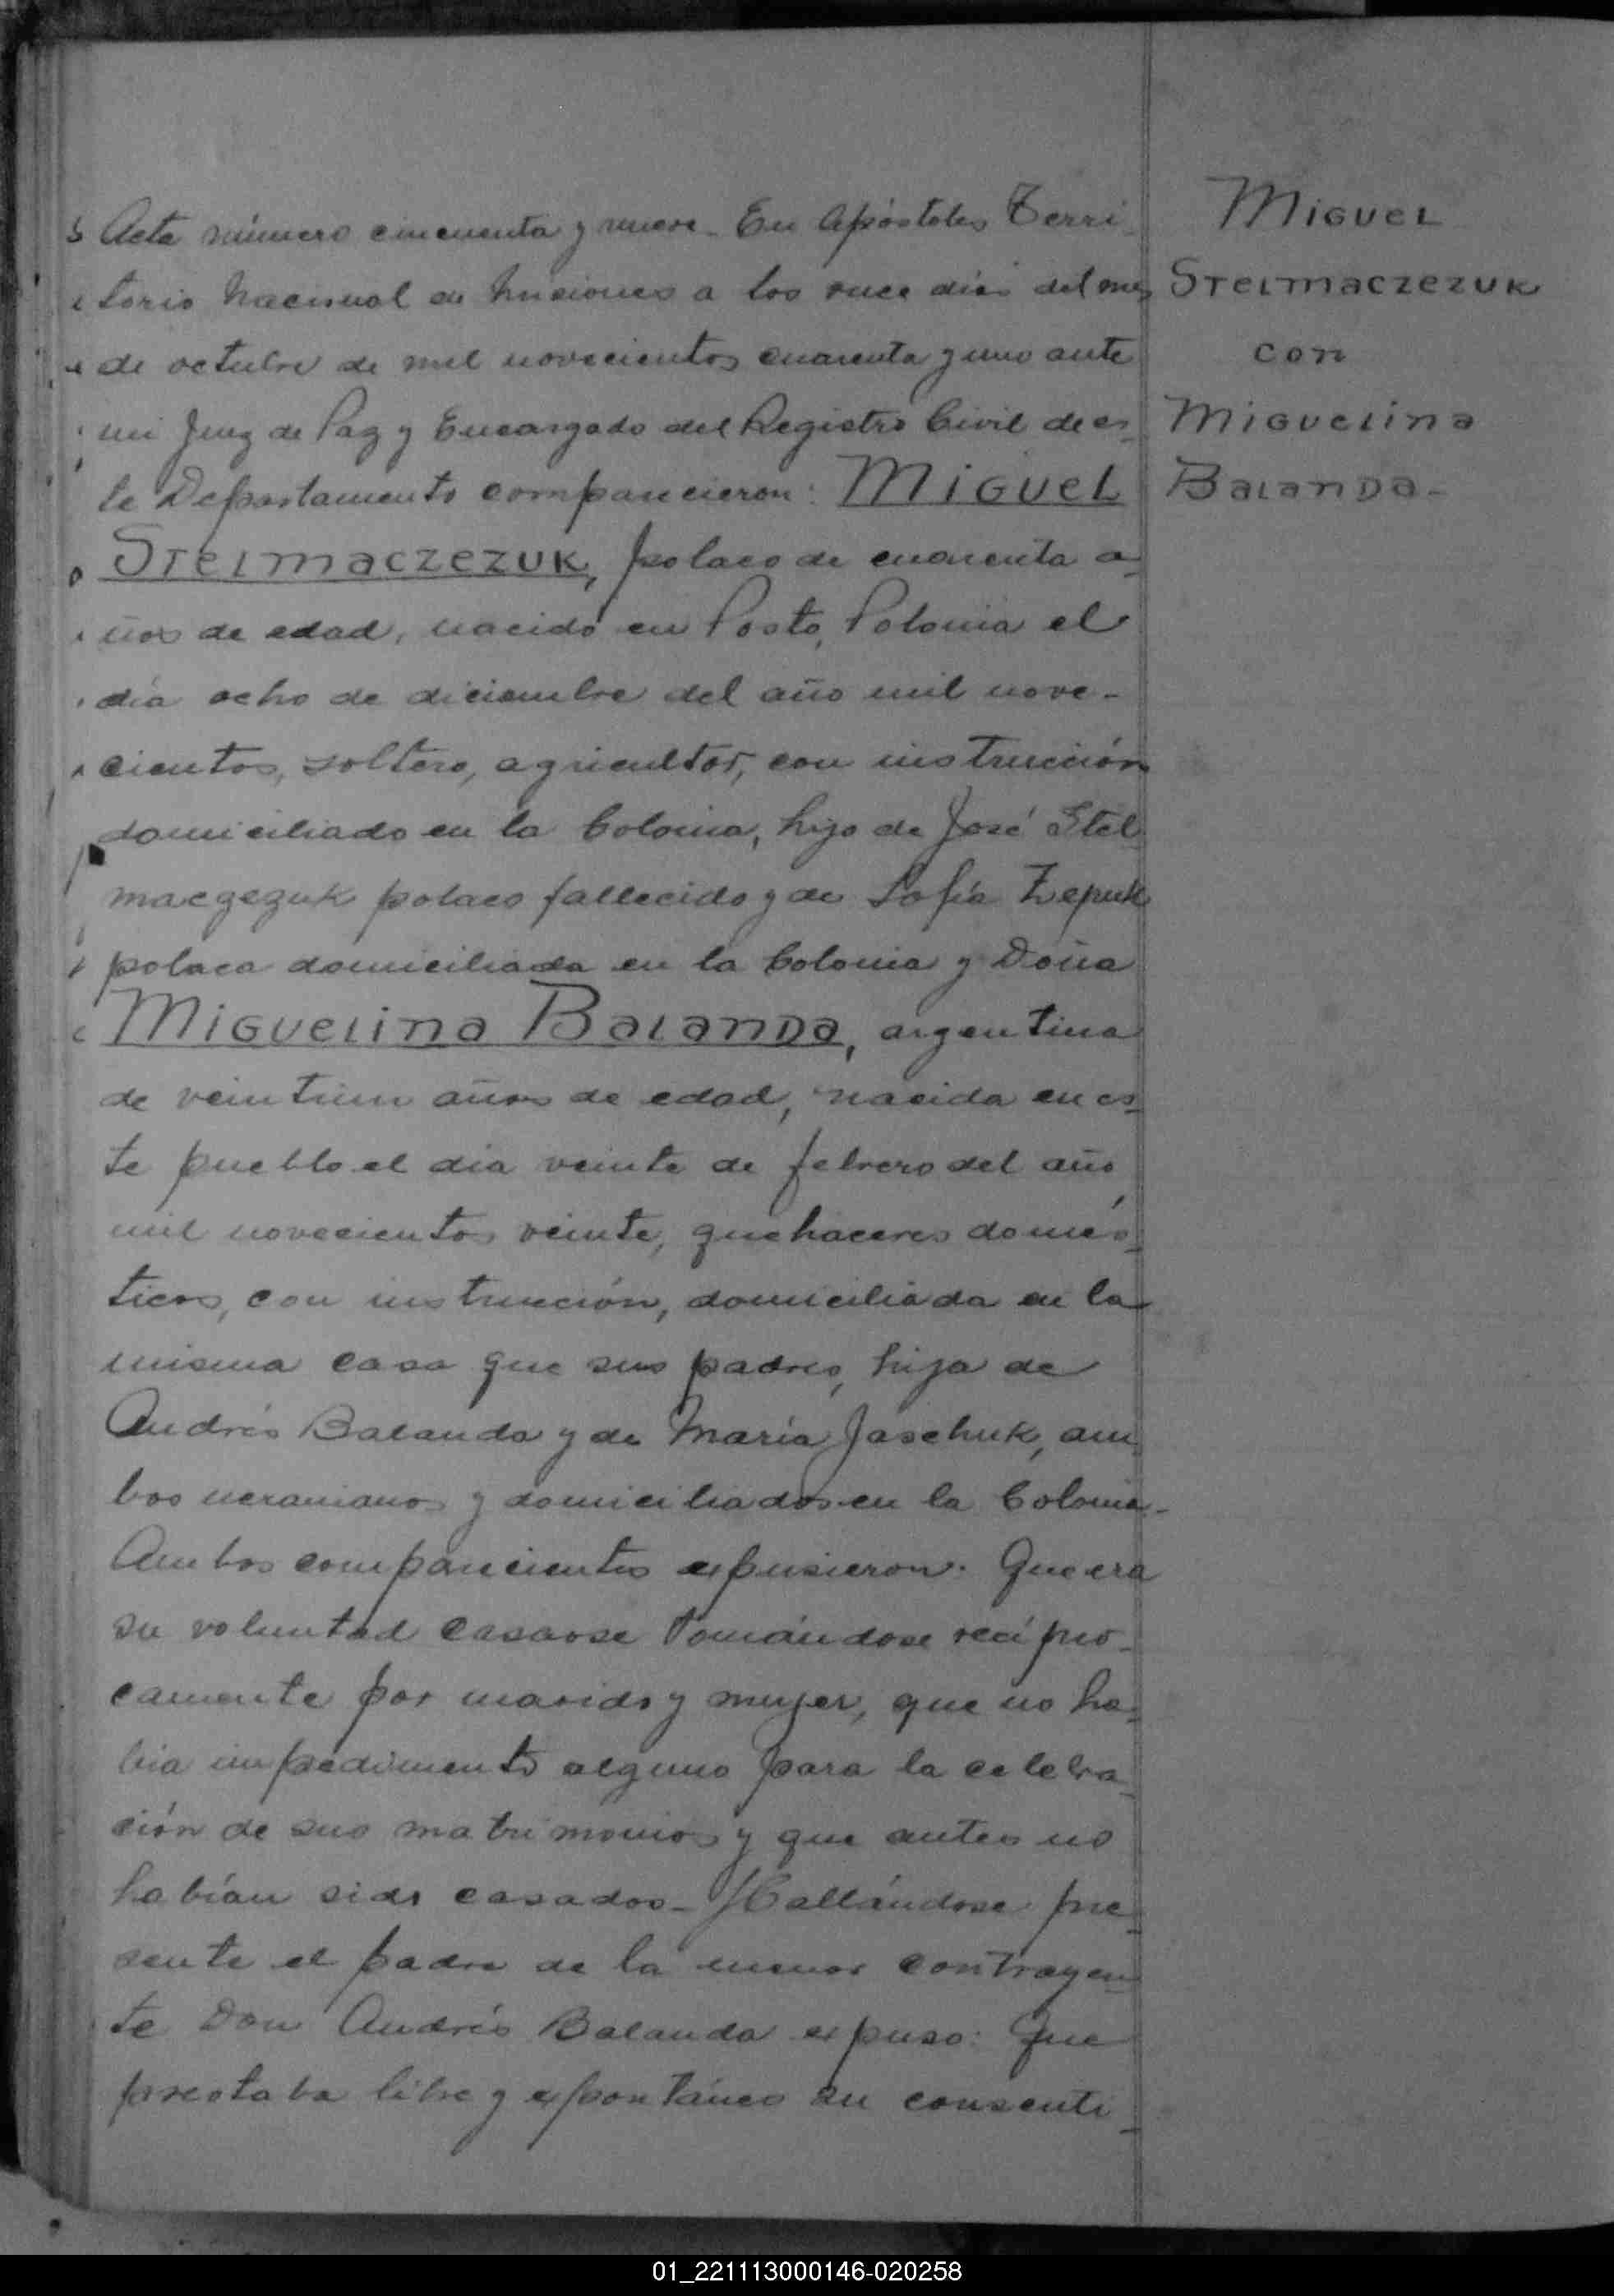 Acta número cincuenta y nueve. En Apóstoles Terri-
torio Nacional de Misiones a los once días del mes
de octubre de mil novecientos cuarenta y uno ante
mi Juez de Paz y Encargado del Registro Civil de es-
te Departamento comparecieron: MIGUEL
STELMACZEZUK, polaco de cuarenta a-
ños de edad, nacido en Posto, Polonia el
día ocho de diciembre del año mil nove-
cientos, soltero, agricultor, con instrucción
domiciliado en la Colonia, hijo de José Stel
maczezuk polaco fallecido y de Sofía Zepuk
polaca domiciliada en la Colonia y Doña
MIGUELINA BALANDA, argentina
de veintiun años de edad, nacida en es-
te pueblo el día veinte de febrero del año
mil novecientos veinte, quehaceres domés-
ticos, con instrucción, domiciliada en la
misma casa que sus padres, hija de
Andrés Balanda y de María Jaschuk, am-
bos ucranianos y domiciliados en la Colonia-
Ambos comparecientes expusieron: Que era
su voluntad casarse tomándose recípro-
camente por marido y mujer, que no ha-
bia impedimento alguno para la celebra-
ción de sus matrimonios y que antes no
habían sido casados- Hallándose pre-
sente el padre de la menor contrayen-
te Don Andrés Balanda expuso: Que
prestaba libre y expontáneo su consenti-
MIGUEL
STELMACZEZUK
con
MIGUELINA
BALANDA-
01_221113000146-020258